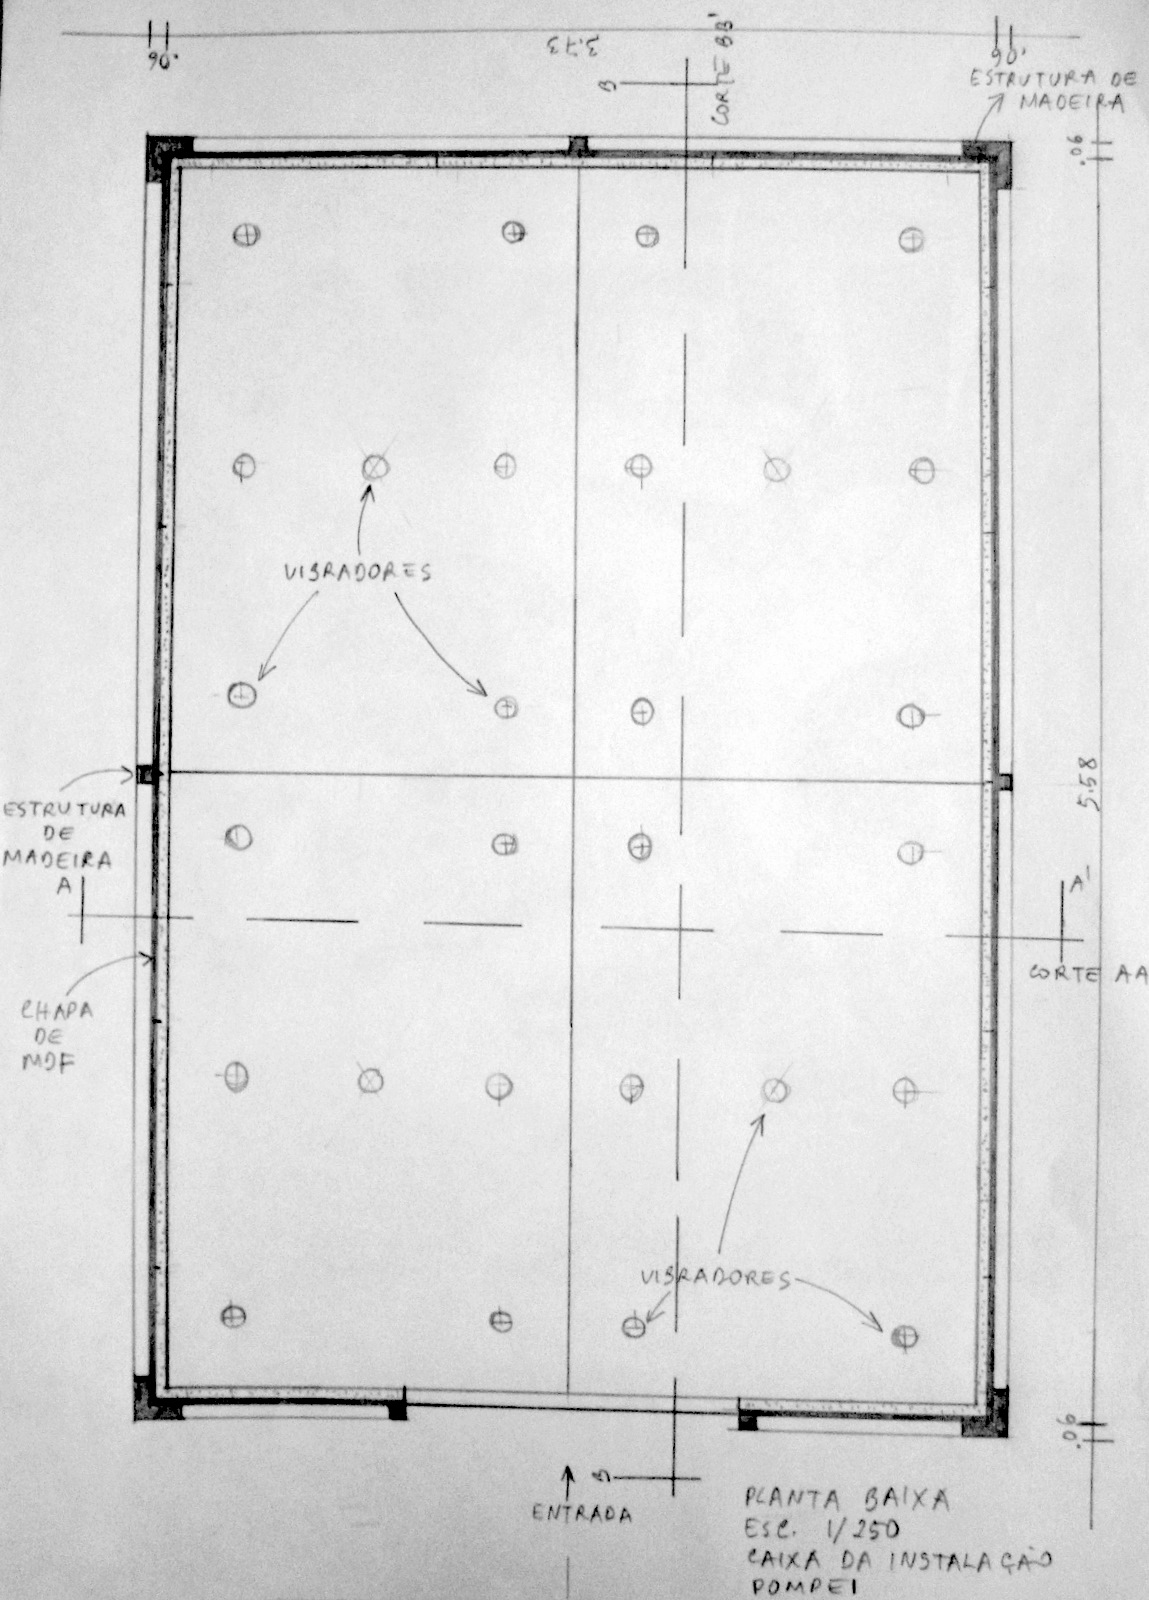 .06
3.73
.06
B
CORTE BB'
ESTRUTURA DE
MADEIRA
.06
VIBRADORES
ESTRUTURA
DE
MADEIRA
A
5.58
A'
CORTE AA
CHAPA
DE
MDF
VIBRADORES
.06
B
ENTRADA
PLANTA BAIXA
ESC. 1/250
CAIXA DA INSTALAÇÃO
POMPEI